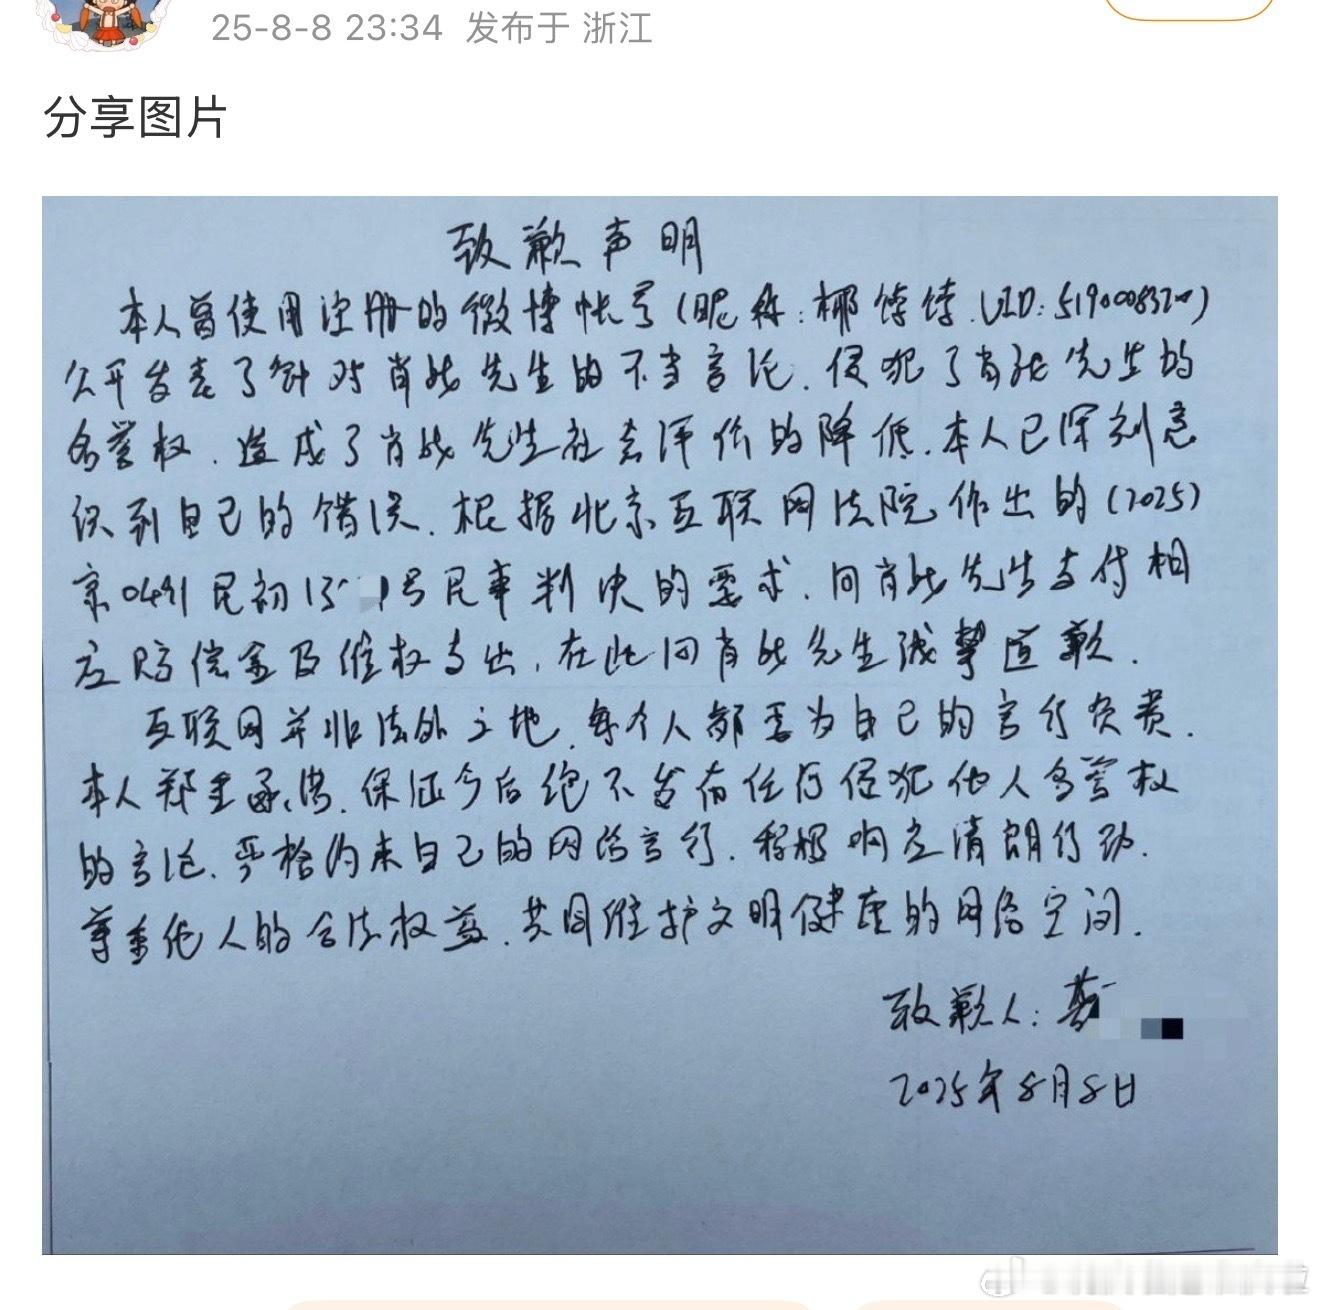 25-8-8 23:34 发布于 浙江
分享图片
致歉声明
本人曾使用注册的微博帐号(昵称:椰饽饽.UID:
公开发表了针对肖战先生的不当言论,侵犯了肖战先生的
名誉权,造成了肖战先生社会评价的降低.本人已深刻意
识到自己的错误.根据北京互联网法院作出的(2025)
京0491民初 号民事判决的要求,向肖战先生支付相
应赔偿金及维权支出,在此向肖战先生诚挚道歉.
互联网并非法外之地,每个人都要为自己的言行负责.
本人郑重承诺,保证今后绝不发布任何侵犯他人名誉权
的言论,严格约束自己的网络言行,积极响应清朗行动.
尊重他人的合法权益,共同维护文明健康的网络空间.
致歉人:
2025年8月8日